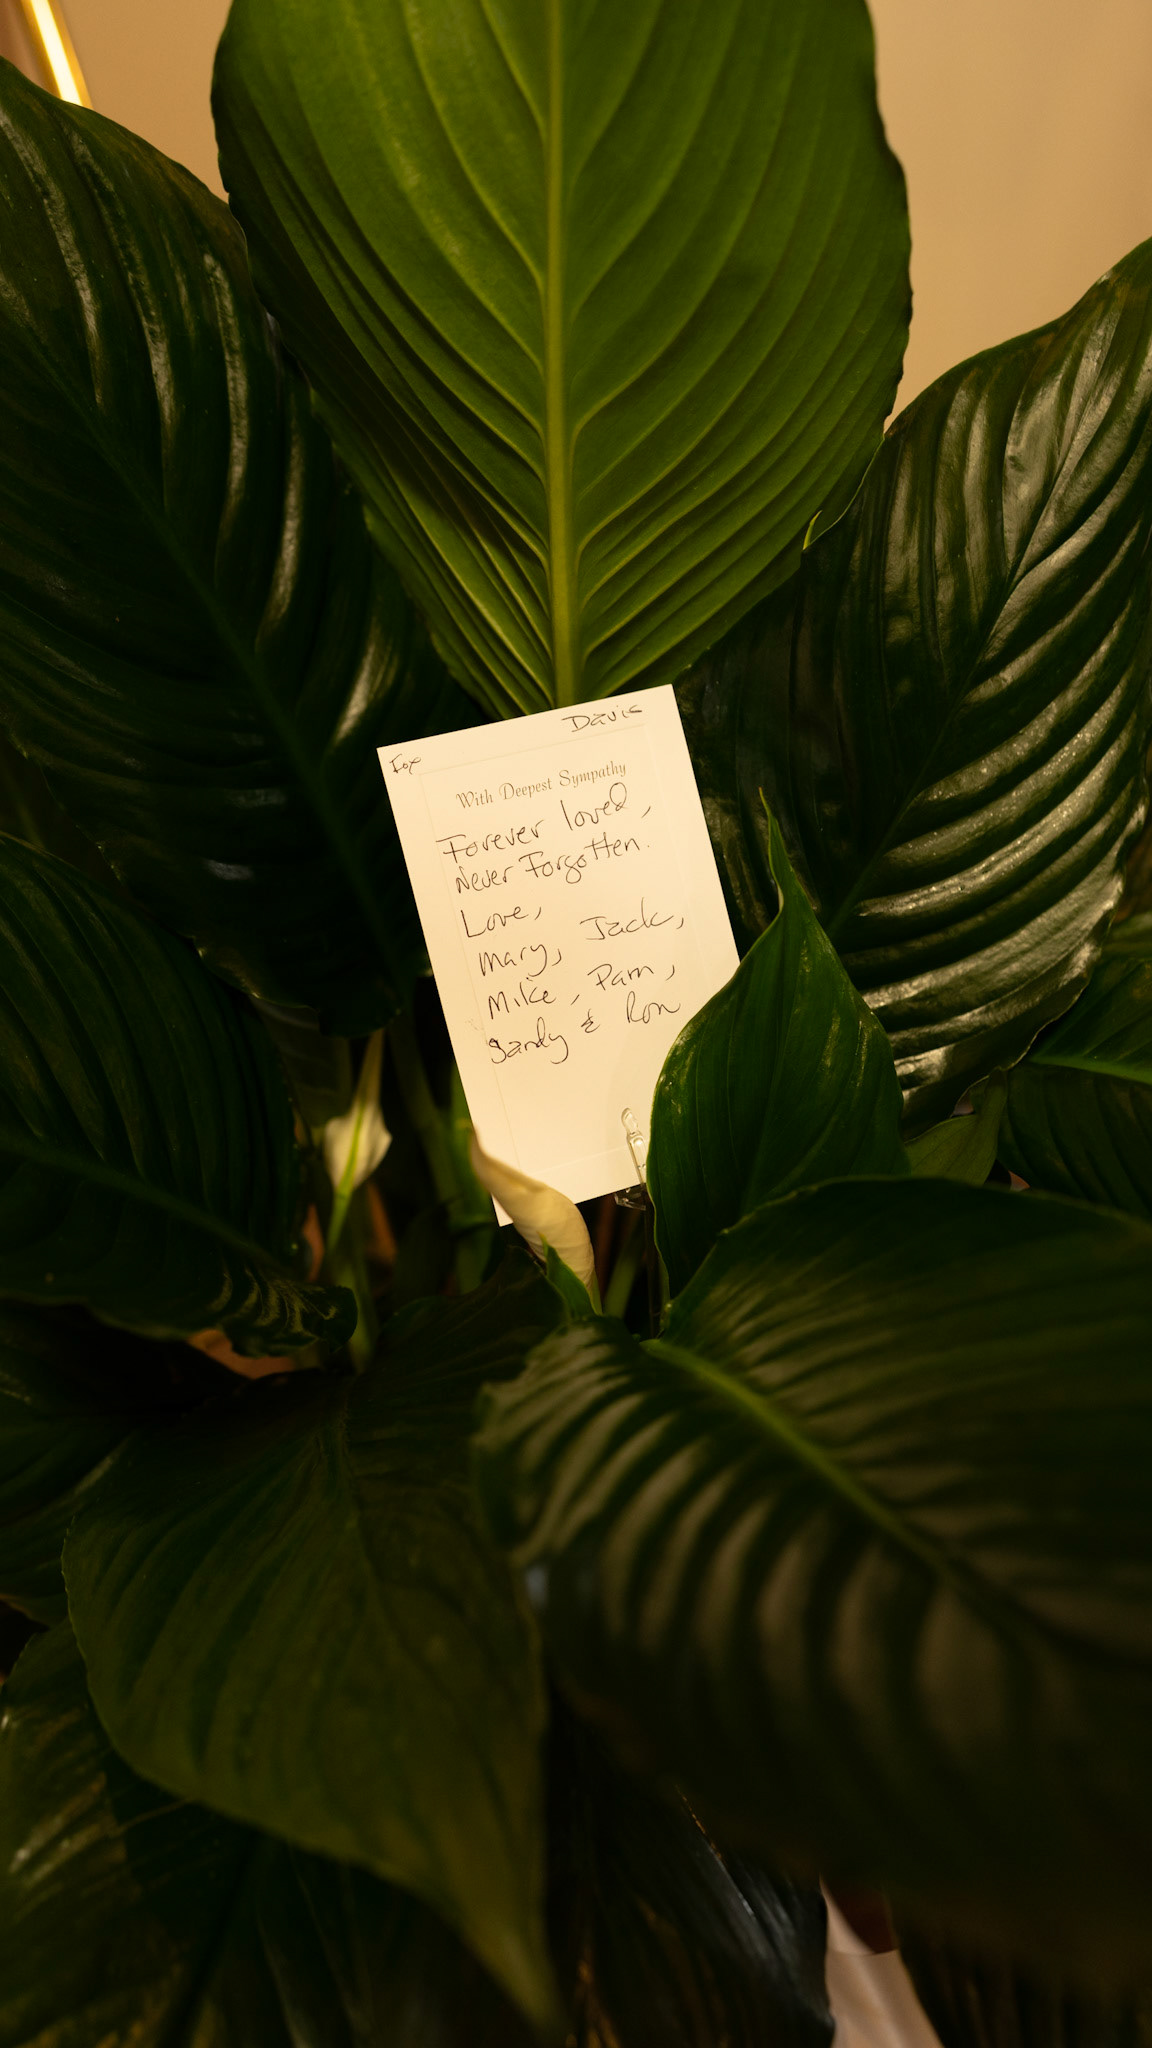 Davis
Fox
With Deepest Sympathy
Forever loved,
Never Forgotten.
Love,
Mary, Jack,
Mike, Pam,
Sandy & Ron